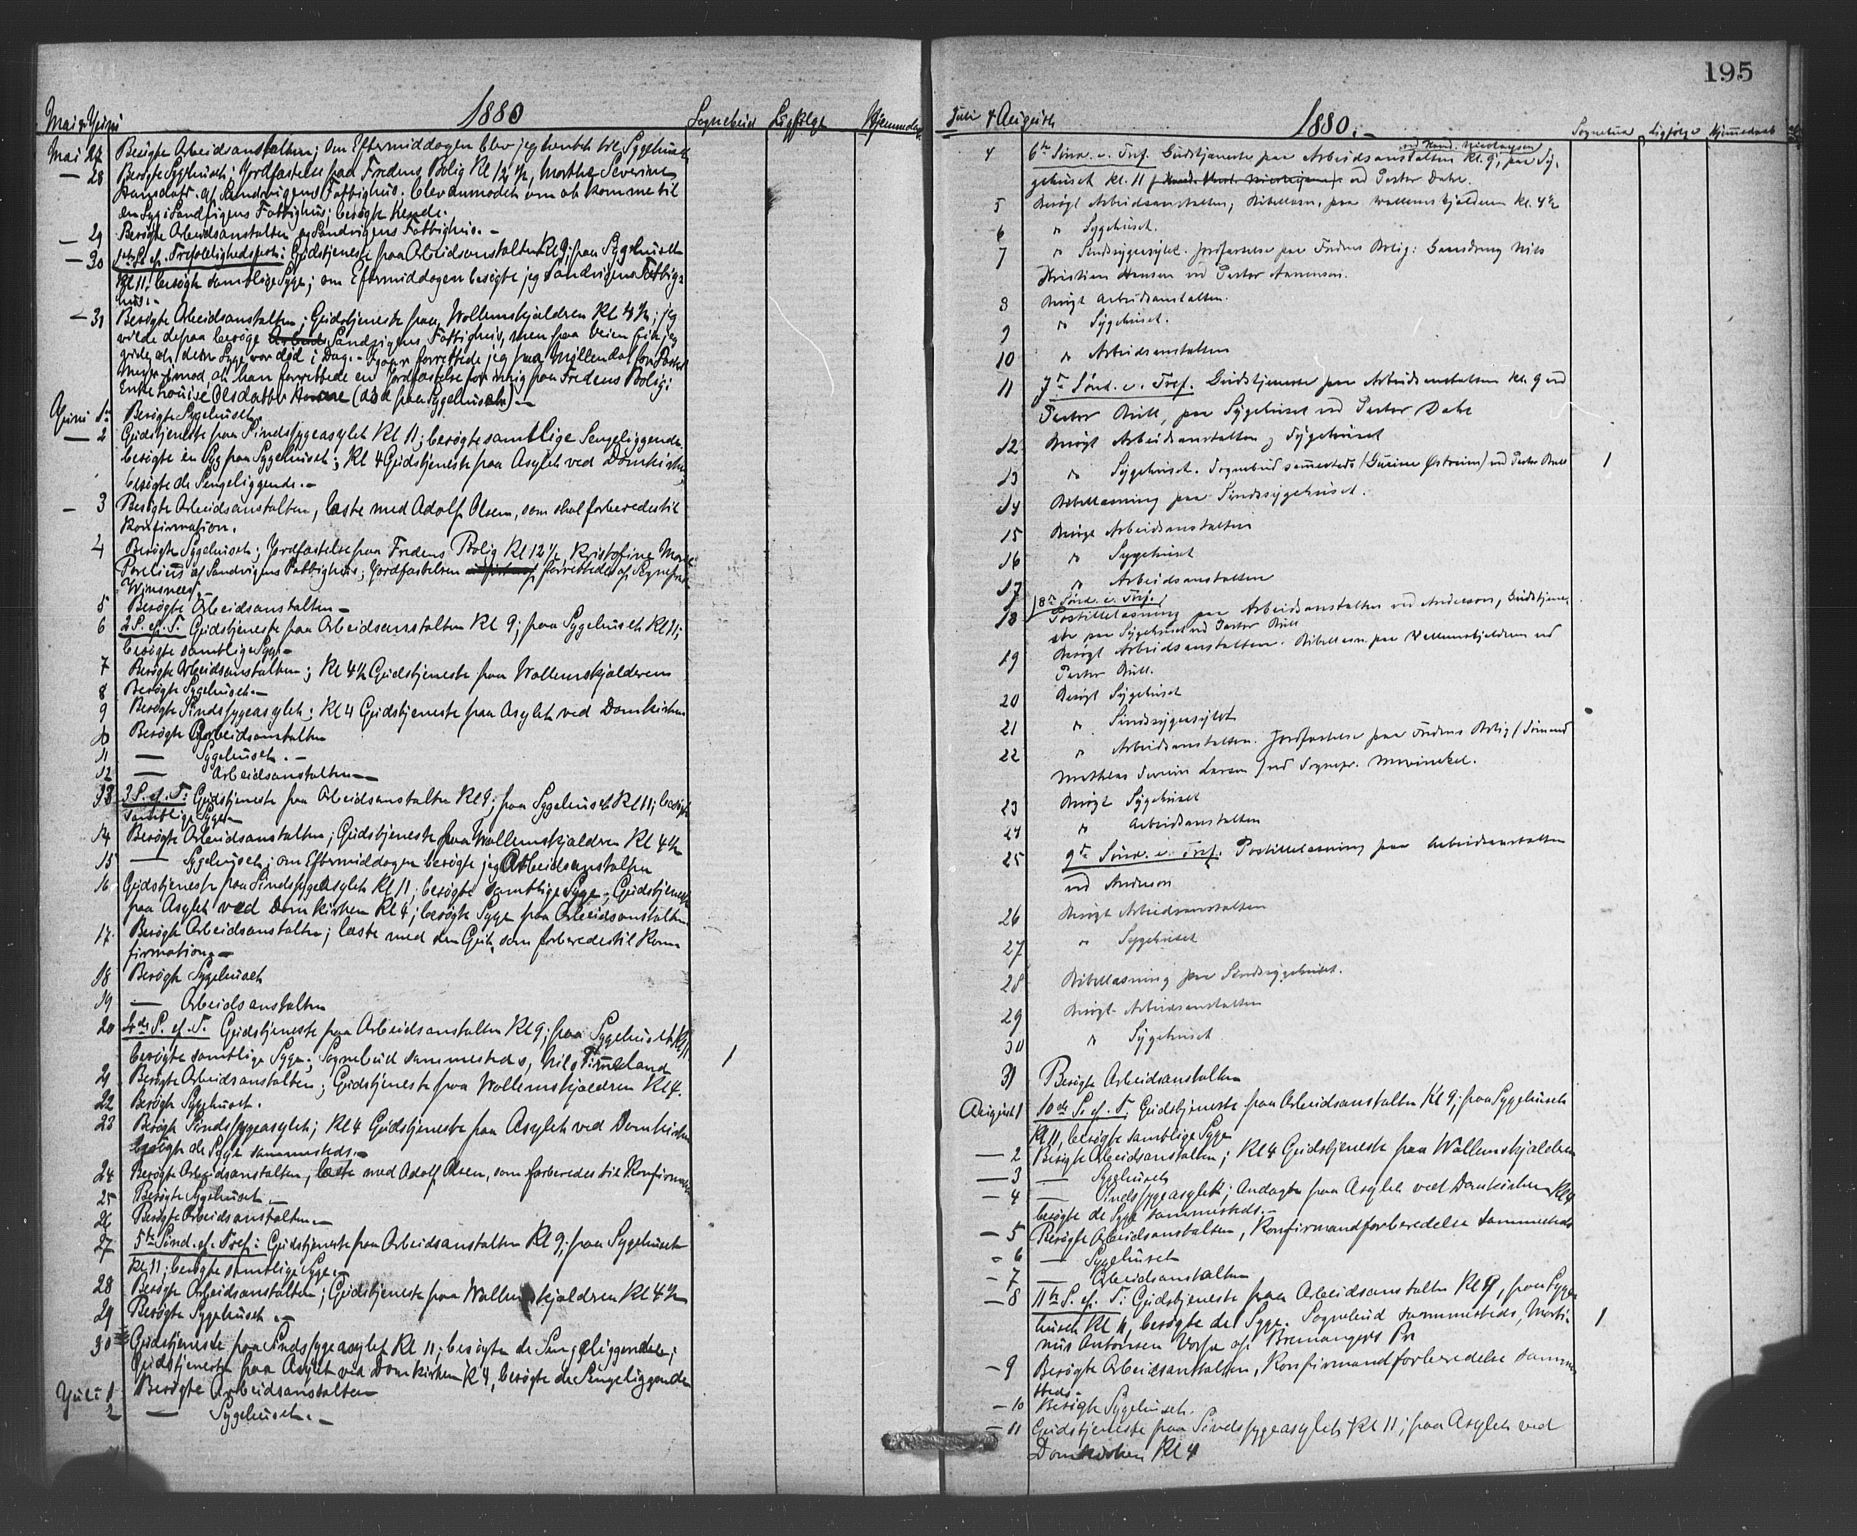 Mai & Juni 1880 Sognebud Ligfølge Hjemmedaab
Mai 27 Besøgte Arbeidsanstalten; om Eftermiddagen blev jeg hentet til Sygehuset
— 28 Besøgte Sygehuset; Jordfæstelse paa Fredens Bolig Kl 12½, Marthe Severine
Hansdatr. af Sandvigens Fattighus. blev anmodet om at komme til
en Syg i Sandvigens Fattighus; besøgte Hende.
— 29 Besøgte Arbeidsanstalten og Sandvigens Fattighus. —
— 30 1ste S. ef. Trefoldighedsfest: Gudstjeneste paa Arbeidsanstalten Kl 9; paa Sygehuset
Kl 11; besøgte samtlige Syge; om Eftermiddagen besøgte jeg Sandvigens Fattig-
hus. —
— 31 Besøgte Arbeidsanstalten; Gudstjeneste paa Wollemskjældren Kl 4½; jeg
vilde derpaa besøge Sandvigens Fattighus, men paa Veien fik jeg
vide, at den Syge var død i Dag. — Igaar forrettede jeg paa Møllendal for Pastor
Meyer imod, at han forrettede en Jordfæstelse for mig paa Fredens Bolig:
Enke Louise Olsdatter (død paa Sygehuset). —
Juni 1. Besøgte Sygehuset.
— 2 Gudstjeneste paa Sindssygeasylet Kl 11; besøgte samtlige Sengeliggende
besøgte en Syg paa Sygehuset; Kl 4 Gudstjeneste paa Asylet ved Domkirken
besøgte de Sengeliggende. —
— 3 Besøgte Arbeidsanstalten, læste med Adolf Olsen, som skal forberedes til
Konfirmation.
4 Besøgte Sygehuset; Jordfæstelse paa Fredens Bolig Kl 12½, Kristofine Marie
af Sandvigens Fattighus; Jordfæstelsen forrettedes af Sognepræst
Winsnes. —
5 Besøgte Arbeidsanstalten —
6 2 S. ef. T. Gudstjeneste paa Arbeidsanstalten Kl 9; paa Sygehuset Kl 11;
besøgte samtlige Syge —
7 Besøgte Arbeidsanstalten; Kl 4½ Gudstjeneste paa Wollemskjælderen
8 Besøgte Sygehuset. —
9 Besøgte Sindssygeasylet; Kl 4 Gudstjeneste paa Asylet ved Domkirken
10 Besøgte Arbeidsanstalten
11 — Sygehuset. —
12 — Arbeidsanstalten —
13 3 S. ef. T: Gudstjeneste paa Arbeidsanstalten Kl 9; paa Sygehuset Kl 11; besøgte
samtlige Syge —
14 Besøgte Arbeidsanstalten; Gudstjeneste paa Wollemskjældren Kl 4½
15 — Sygehuset; om Eftermiddagen besøgte jeg Arbeidsanstalten
16 Gudstjeneste paa Sindssygeasylet Kl 11; besøgte samtlige Syge; Gudstjeneste
paa Asylet ved Domkirken Kl 4; besøgte Syge paa Arbeidsanstalten
17. Besøgte Arbeidsanstalten; læste med den Gut, som forberedes til Kon-
firmation; —
18 Besøgte Sygehuset
19 — Arbeidsanstalten
20 4de S. ef. T. Gudstjeneste paa Arbeidsanstalten Kl 9; paa Sygehuset Kl 11
besøgte samtlige Syge; Sognebud sammesteds, Nils Fimreland 1
21 Besøgte Arbeidsanstalten; Gudstjeneste paa Wollemskjældren Kl 4.
22 Besøgte Sygehuset.
23 Besøgte Sindssygeasylet; Kl 4 Gudstjeneste paa Asylet ved Domkirken
besøgte de Syge sammesteds. —
24 Besøgte Arbeidsanstalten, læste med Adolf Olsen, som forberedes til Konfirmation
25 Besøgte Sygehuset. —
26 Besøgte Arbeidsanstalten. —
27 5te Sønd. ef. Tref: Gudstjeneste paa Arbeidsanstalten Kl 9; paa Sygehuset
Kl 11; besøgte samtlige Syge. —
28 Besøgte Arbeidsanstalten; Gudstjeneste paa Wollemskjældren Kl 4½
29 Besøgte Sygehuset. —
30 Gudstjeneste paa Sindssygeasylet Kl 11; besøgte de Sengeliggende;
Gudstjeneste paa Asylet ved Domkirken Kl 4, besøgte de Sengeliggende
Juli 1 Besøgte Arbeidsanstalten
2 — Sygehuset. —
195
Juli & August 1880. — Sognebud Ligfølge Hjemmedaab
ved Kand. Nicolaysen
4 6te Sønd. e. Tref. Gudstjeneste paa Arbeidsanstalten Kl. 9, paa Sy-
gehuset Kl. 11 ved Pastor Dahl.
5 Besøgt Arbeidsanstalten; Bibellæsn. paa Wallemskjelderen Kl. 4½
6 " Sygehuset.
7 " Sindssygeasylet. Jordfæstelse paa Fredens Bolig: Nils
Kristian Hansen ved Pastor
8 Besøgt Arbeidsanstalten.
9 " Sygehuset.
10 " Arbeidsanstalten
11 7de Sønd. e. Tref. Gudstjeneste paa Arbeidsanstalten Kl. 9 ved
Pastor Bull, paa Sygehuset ved Pastor Dahl
12. Besøgt Arbeidsanstalten og Sygehuset
13 " Sygehuset. Sognebud sammesteds (Gurine Østreim) ved Pastor Bull 1
14 Bibellæsning paa Sindssygehuset.
15 Besøgt Arbeidsanstalten
16 " Sygehuset
17 " Arbeidsanstalten
8de Sønd. e. Tref.
18 Postillelæsning paa Arbeidsanstalten ved Andersen, Gudstjene-
ste paa Sygehuset ved Pastor Bull
19 Besøgt Arbeidsanstalten. Bibellæsn. paa Wallemskjeldren ved
Pastor Bull.
20 Besøgt Sygehuset
21 " Sindssygeasylet
22 " Arbeidsanstalten. Jordfæstelse paa Fredens Bolig (Sømand
Mathias Larsen) ved Sognepr. Mowinckel.
23 Besøgt Sygehuset
24 " Arbeidsanstalten
25 9de Sønd. e. Tref. Postillelæsning paa Arbeidsanstalten
ved Andersen
26 Besøgt Arbeidsanstalten
27 " Sygehuset
28 Bibellæsning paa Sindssygehuset.
29 Besøgt Arbeidsanstalten
30 " Sygehuset
31 Besøgte Arbeidsanstalten
August 1 10de S. ef. T: Gudstjeneste paa Arbeidsanstalten Kl 9; paa Sygehuset
Kl 11, besøgte samtlige Syge
— 2 Besøgte Arbeidsanstalten; Kl 4 Gudstjeneste paa Wallemskjælderen
— 3 — Sygehuset
— 4 — Sindssygeasylet; Andagt paa Asylet ved Domkirken Kl 4
besøgte de Syge sammesteds. —
— 5 Besøgte Arbeidsanstalten, Konfirmandforberedelse sammesteds
— 6 — Sygehuset
— 7 — Arbeidsanstalten
— 8 11te S. ef. T: Gudstjeneste paa Arbeidsanstalten Kl 9, paa Syge-
huset Kl 11, besøgte de Syge. Sognebud sammesteds, Marti- 1
nus Antonsen af Bremangers Pr
— 9 Besøgte Arbeidsanstalten, Konfirmandforberedelse samme-
steds. —
— 10 Besøgte Sygehuset.
— 11 Gudstjeneste paa Sindssygeasylet Kl 11; paa Asylet ved
Domkirken Kl 4